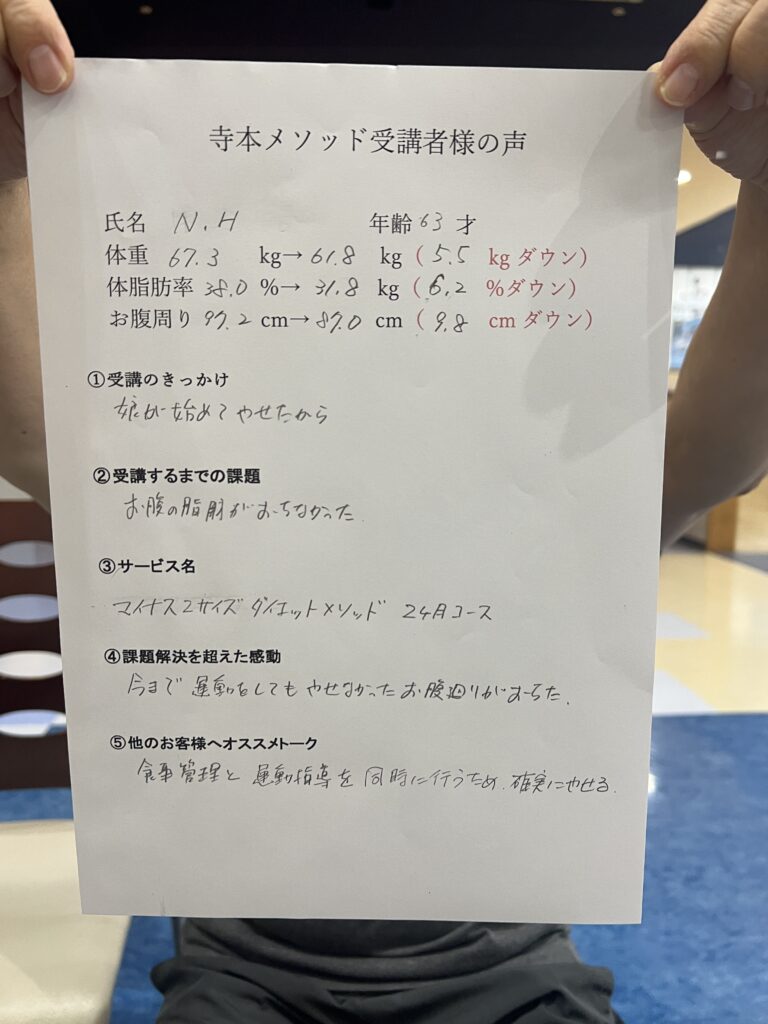 寺本メソッド受講者様の声
氏名 N.H 年齢 63 才
体重 67.3 kg→ 61.8 kg ( 5.5 kg ダウン)
体脂肪率 38.0 %→ 31.8 kg ( 6.2 %ダウン)
お腹周り 97.2 cm→ 87.0 cm ( 9.8 cm ダウン)
①受講のきっかけ
娘が始めてやせたから
②受講するまでの課題
お腹の脂肪がおちなかった.
③サービス名
マイナス2サイズダイエットメソッド 2ヶ月コース
④課題解決を超えた感動
今まで運動をしてもやせなかったお腹廻りがおちた.
⑤他のお客様へオススメトーク
食事管理と運動指導を同時に行うため.確実にやせる.